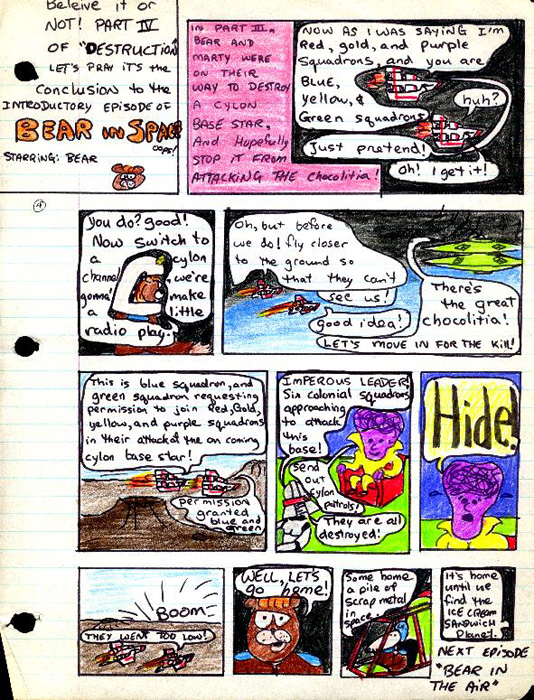 Beleive it or
NOT! PART IV
OF "DESTRUCTION"
LET'S PRAY ITS the
Conclusion to the
INTRODUCTORY EPISODE OF
BEAR IN SPACE
OOPS!
STARRING: BEAR
IN PART III,
BEAR AND
MARTY WERE
ON THEIR
WAY TO DESTROY
A CYLON
BASE STAR,
AND Hopefully
STOP IT FROM
ATTACKING THE chocolitia!
NOW AS I WAS SAYING I'M
Red, gold, and purple
Squadrons, and you are
BLUE,
yellow, &
Green squadrons
huh?
Just pretend!
Oh! I get it!
4
You do? good!
Now switch to
a cylon
channel we're
gonna make
a little
radio play.
Oh, but before
we do! fly closer
to the ground so
that they can't
see us!
good idea!
There's
the great
chocolitia!
LET'S MOVE IN FOR THE Kill!
This is blue squadron, and
green squadron requesting
permission to join Red, Gold,
yellow, and purple squadrons
in their attack of the on coming
cylon base star!
permission
granted
blue and
green
IMPEROUS LEADER!
Six colonial squadrons
approaching
to attack
this
base!
Send
out
cylon
patrols!
They are all
destroyed!
Hide!
BOOM
THEY WENT TOO LOW!
WELL, LET'S
go home!
Some home
a pile of
scrap metal
in space
It's home
until we
find the
ICE CREAM
SANDWICH
Planet.
NEXT EPISODE
"BEAR IN
THE AIR"